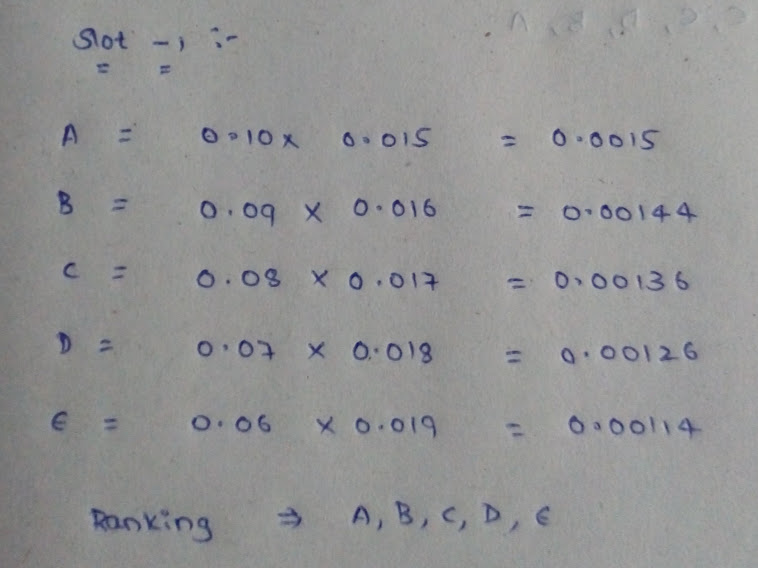 Slot -1 :-
A = 0.10 x 0.015 = 0.0015
B = 0.09 x 0.016 = 0.00144
C = 0.08 x 0.017 = 0.00136
D = 0.07 x 0.018 = 0.00126
E = 0.06 x 0.019 = 0.00114
Ranking ⇒ A, B, C, D, E